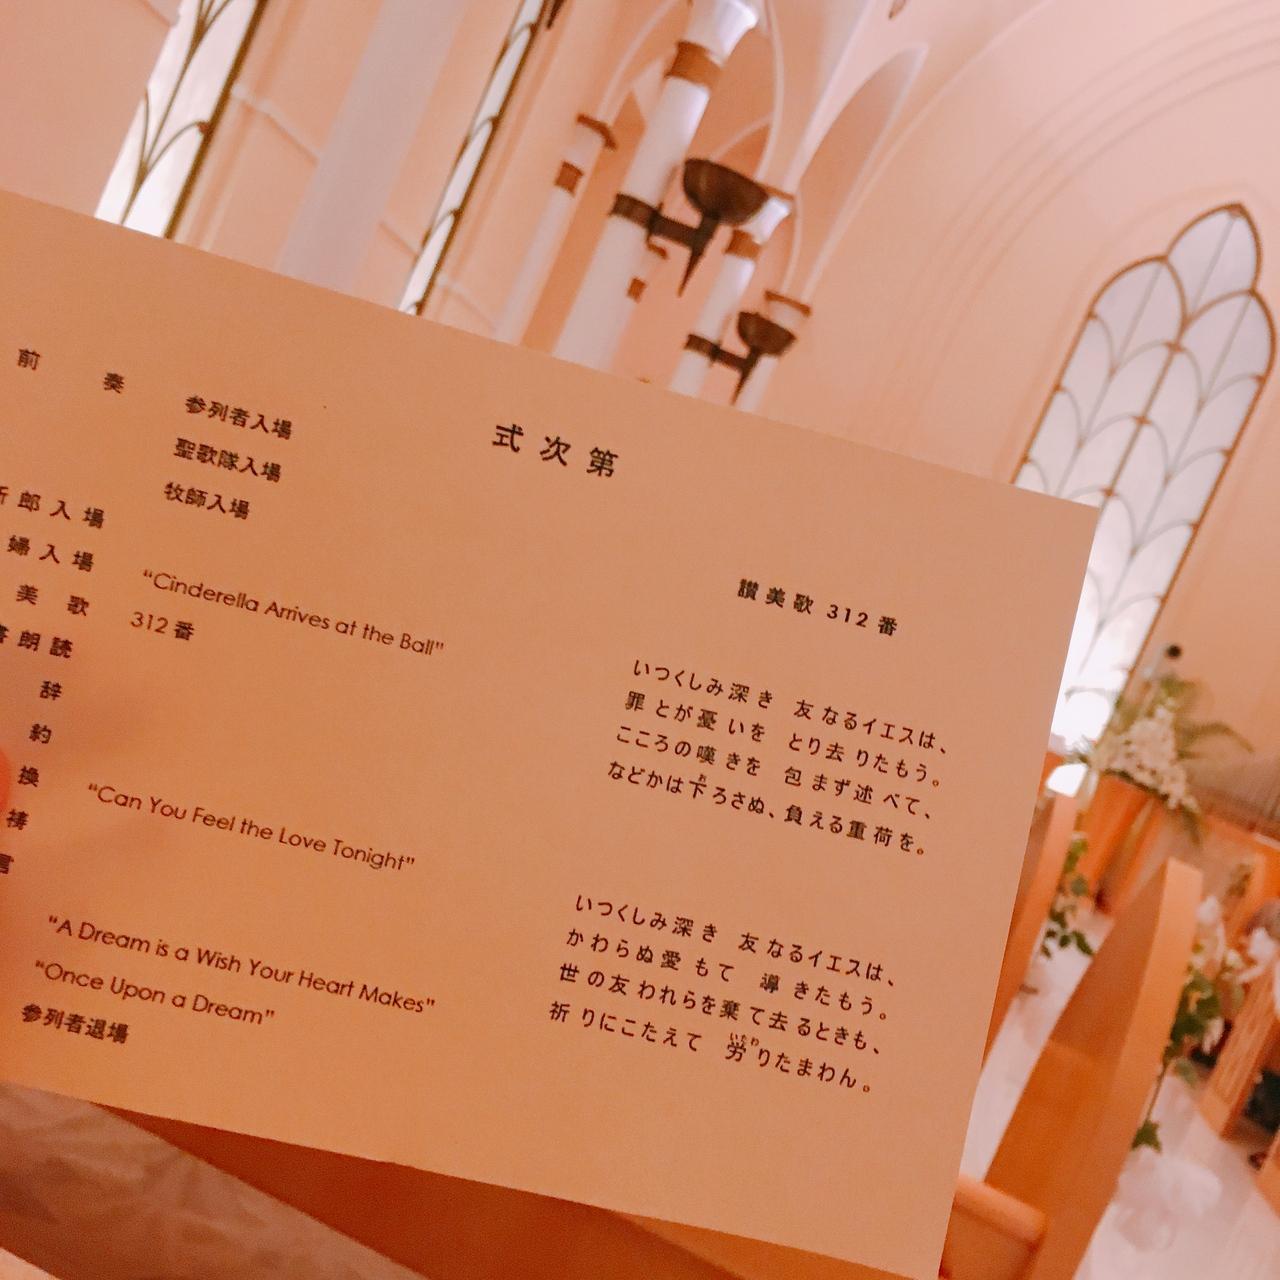 式次第
前奏 参列者入場
聖歌隊入場
牧師入場
郎入場
婦入場 "Cinderella Arrives at the Ball"
美歌 312番
朗読
辞
約
換 "Can You Feel the Love Tonight"
祷
言
"A Dream is a Wish Your Heart Makes"
"Once Upon a Dream"
参列者退場
讃美歌 312番
いつくしみ深き 友なるイエスは、
罪とが憂いを とり去りたもう。
こころの嘆きを 包まず述べて、
などかは下ろさぬ、負える重荷を。
いつくしみ深き 友なるイエスは、
かわらぬ愛もて 導きたもう。
世の友われらを棄て去るときも、
祈りにこたえて 労りたまわん。